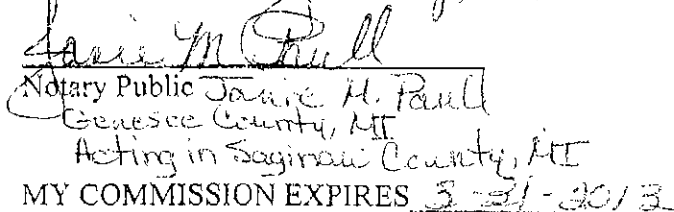 Janie M Paull
Notary Public Janie M. Paull
Genesee County, MI
Acting in Saginaw County, MI
MY COMMISSION EXPIRES 3-31-2013